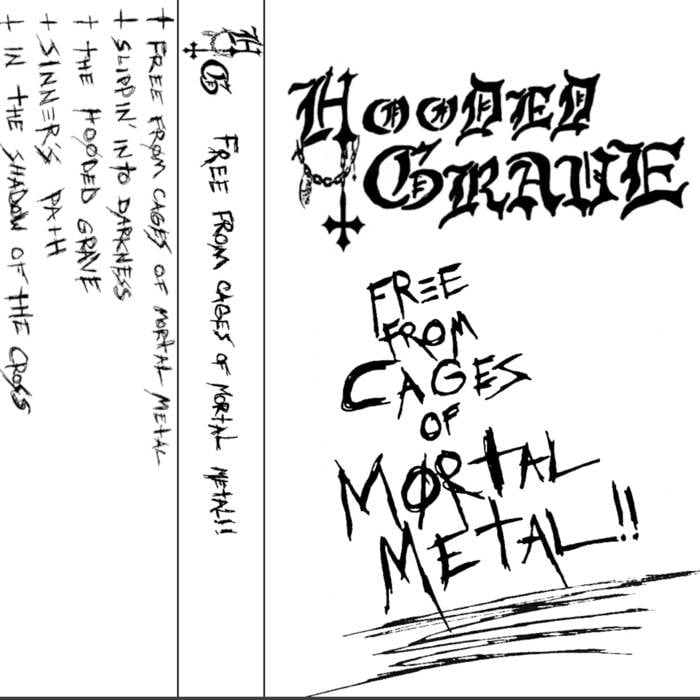 HOODED
GRAVE
FREE
FROM
CAGES
OF
MORTAL
METAL!!
H
G
FREE FROM CAGES OF MORTAL METAL!!
FREE FROM CAGES OF MORTAL METAL
SLIPPIN' INTO DARKNESS
THE HOODED GRAVE
SINNER'S PATH
IN THE SHADOW OF THE CROSS